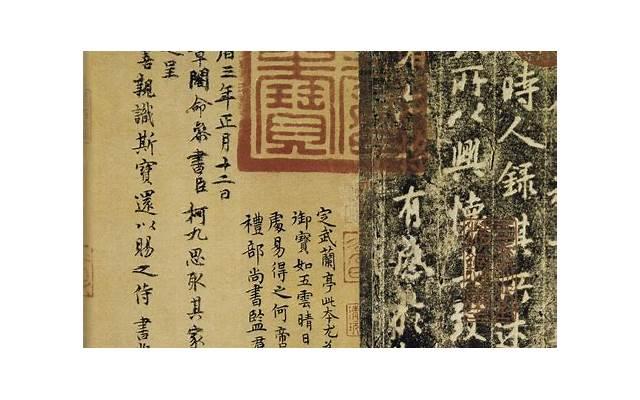 時人錄其所述
所以興懷其致
有感於
定武蘭亭此本尤
御寶如五雲晴日
處易得之何帝
禮部尚書監
曆三年正月十二日
章閣命參書臣柯九思取其家
之呈
善親識斯寶還以賜之侍書
寶